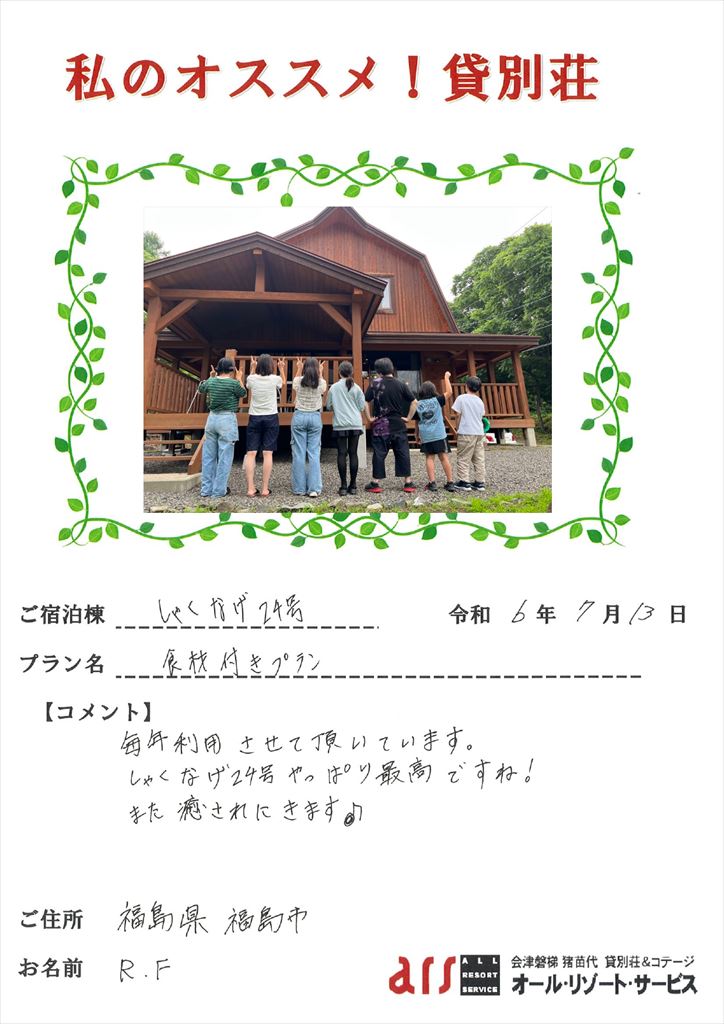 私のオススメ！貸別荘
ご宿泊棟 しゃくなげ24号 令和 6 年 7 月 13 日
プラン名 食材付きプラン
【コメント】
毎年利用させて頂いています。
しゃくなげ24号やっぱり最高ですね！
また癒されにきます♪
ご住所 福島県 福島市
お名前 R.F
ars ALL RESORT SERVICE 会津磐梯 猪苗代 貸別荘&コテージ
オール・リゾート・サービス